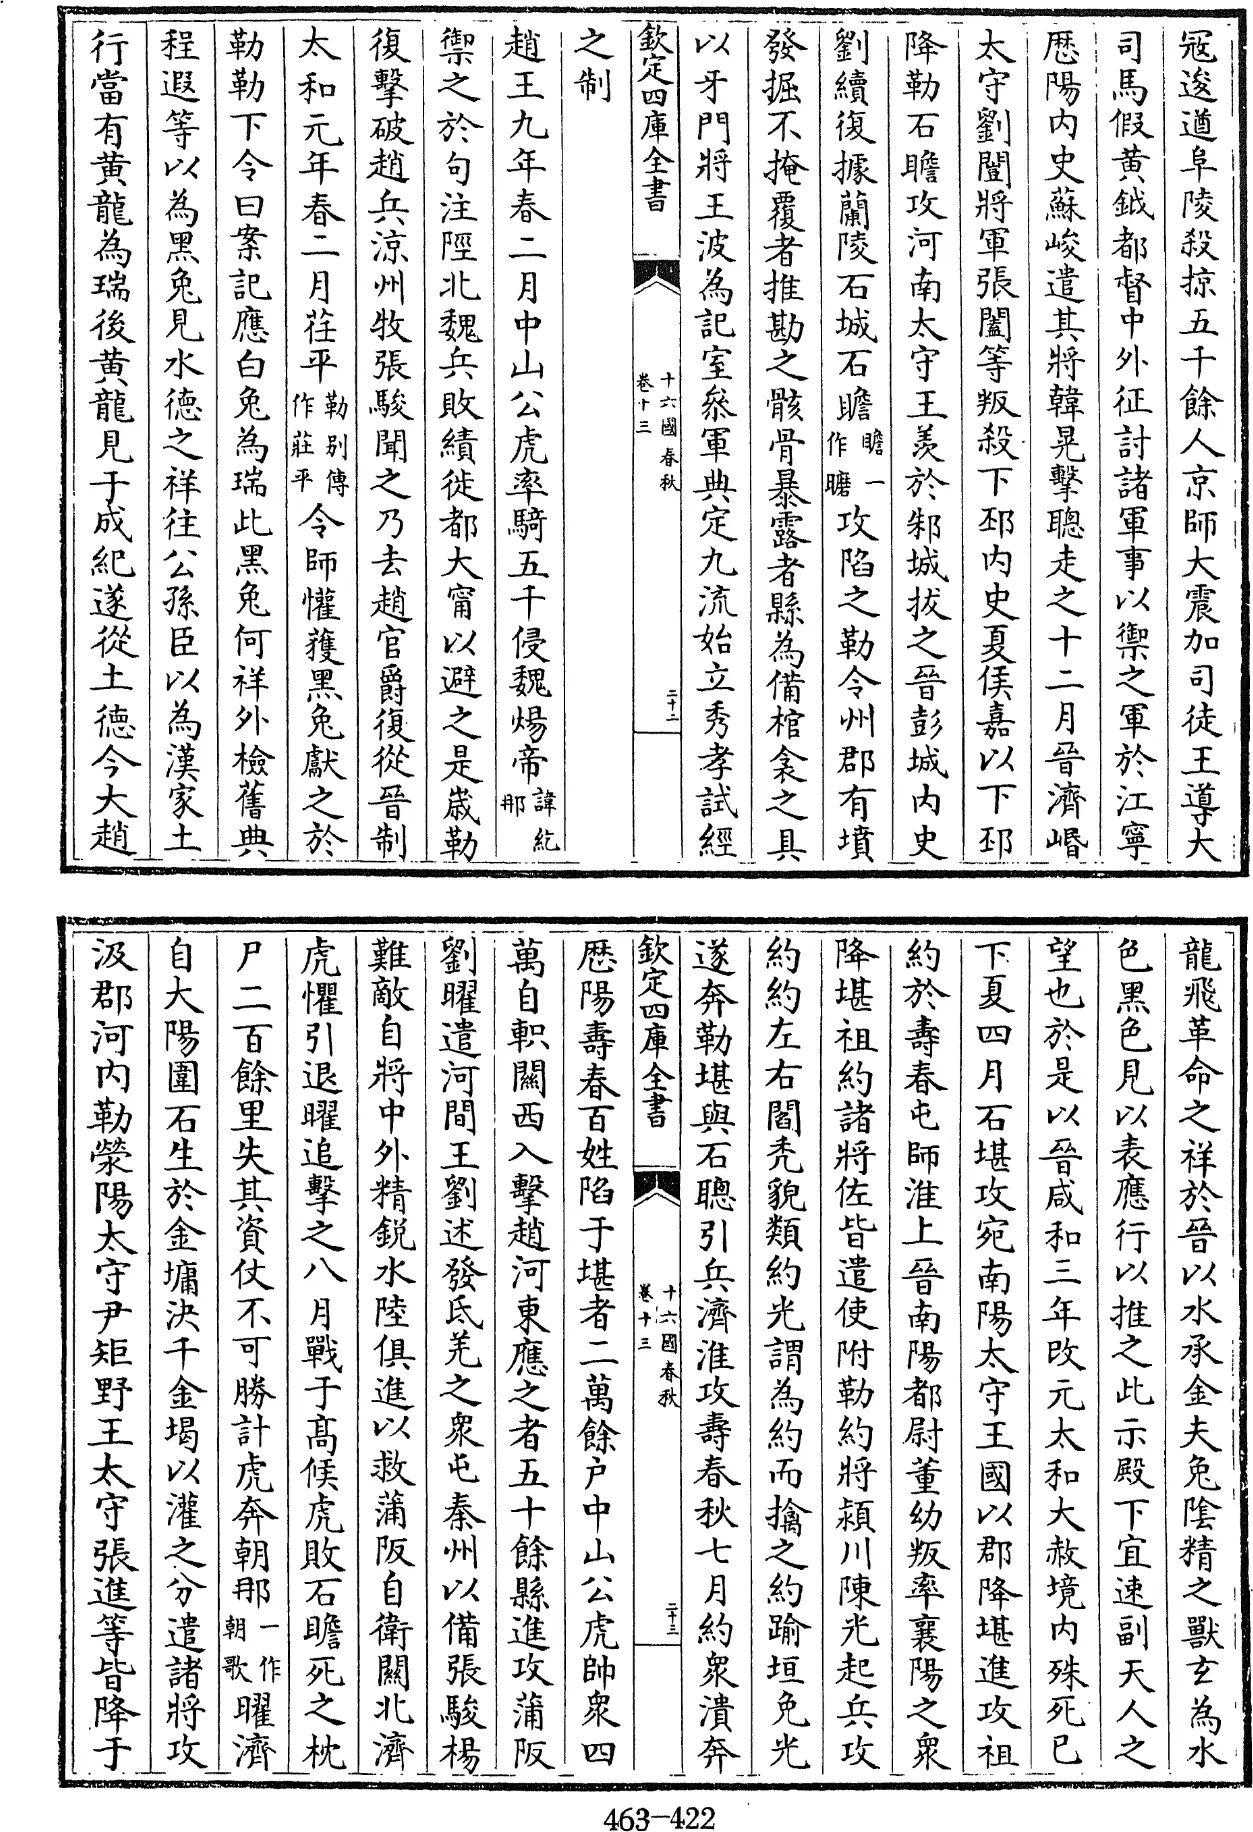 冦逡遒阜陵殺掠五千餘人京師大震加司徒王導大
司馬假黄鉞都督中外征討諸軍事以禦之軍於江寧
歴陽内史蘇峻遣其將韓晃擊聰走之十二月晉濟㟭
太守劉闓將軍張闔等叛殺下邳内史夏侯嘉以下邳
降勒石瞻攻河南太守王羨於邾城拔之晉彭城内史
劉續復據蘭陵石城石瞻瞻一作瞻攻陷之勒令州郡有墳
發掘不掩覆者推勘之骸骨暴露者縣為備棺衾之具
以牙門將王波為記室參軍典定九流始立秀孝試經
欽定四庫全書
十六國春秋
卷十三
二十二
之制
趙王九年春二月中山公虎率騎五千侵魏煬帝諱紇那
禦之於句注陘北魏兵敗績徙都大甯以避之是嵗勒
復擊破趙兵涼州牧張駿聞之乃去趙官爵復從晉制
太和元年春二月茌平勒别傳作莊平令師懽獲黑兔獻之於
勒勒下令曰案記應白兔為瑞此黑兔何祥外檢舊典
程遐等以為黑兔見水德之祥往公孫臣以為漢家土
行當有黄龍為瑞後黄龍見于成紀遂從土德今大趙
龍飛革命之祥於晉以水承金夫兔陰精之獸玄為水
色黑色見以表應行以推之此示殿下宜速副天人之
望也於是以晉咸和三年改元太和大赦境内殊死已
下夏四月石堪攻宛南陽太守王國以郡降堪進攻祖
約於壽春屯師淮上晉南陽都尉董幼叛率襄陽之衆
降堪祖約諸將佐皆遣使附勒約將潁川陳光起兵攻
約約左右閻秃貌類約光謂為約而擒之約踰垣免光
遂奔勒堪與石聰引兵濟淮攻壽春秋七月約衆潰奔
欽定四庫全書
十六國春秋
卷十三
二十三
歴陽壽春百姓陷于堪者二萬餘户中山公虎帥衆四
萬自軹關西入擊趙河東應之者五十餘縣進攻蒲阪
劉曜遣河間王劉述發氐羌之衆屯秦州以備張駿楊
難敵自將中外精鋭水陸俱進以救蒲阪自衛關北濟
虎懼引退曜追擊之八月戰于髙候虎敗石瞻死之枕
尸二百餘里失其資仗不可勝計虎奔朝那一作朝歌曜濟
自大陽圍石生於金墉決千金堨以灌之分遣諸將攻
汲郡河内勒滎陽太守尹矩野王太守張進等皆降于
463-422